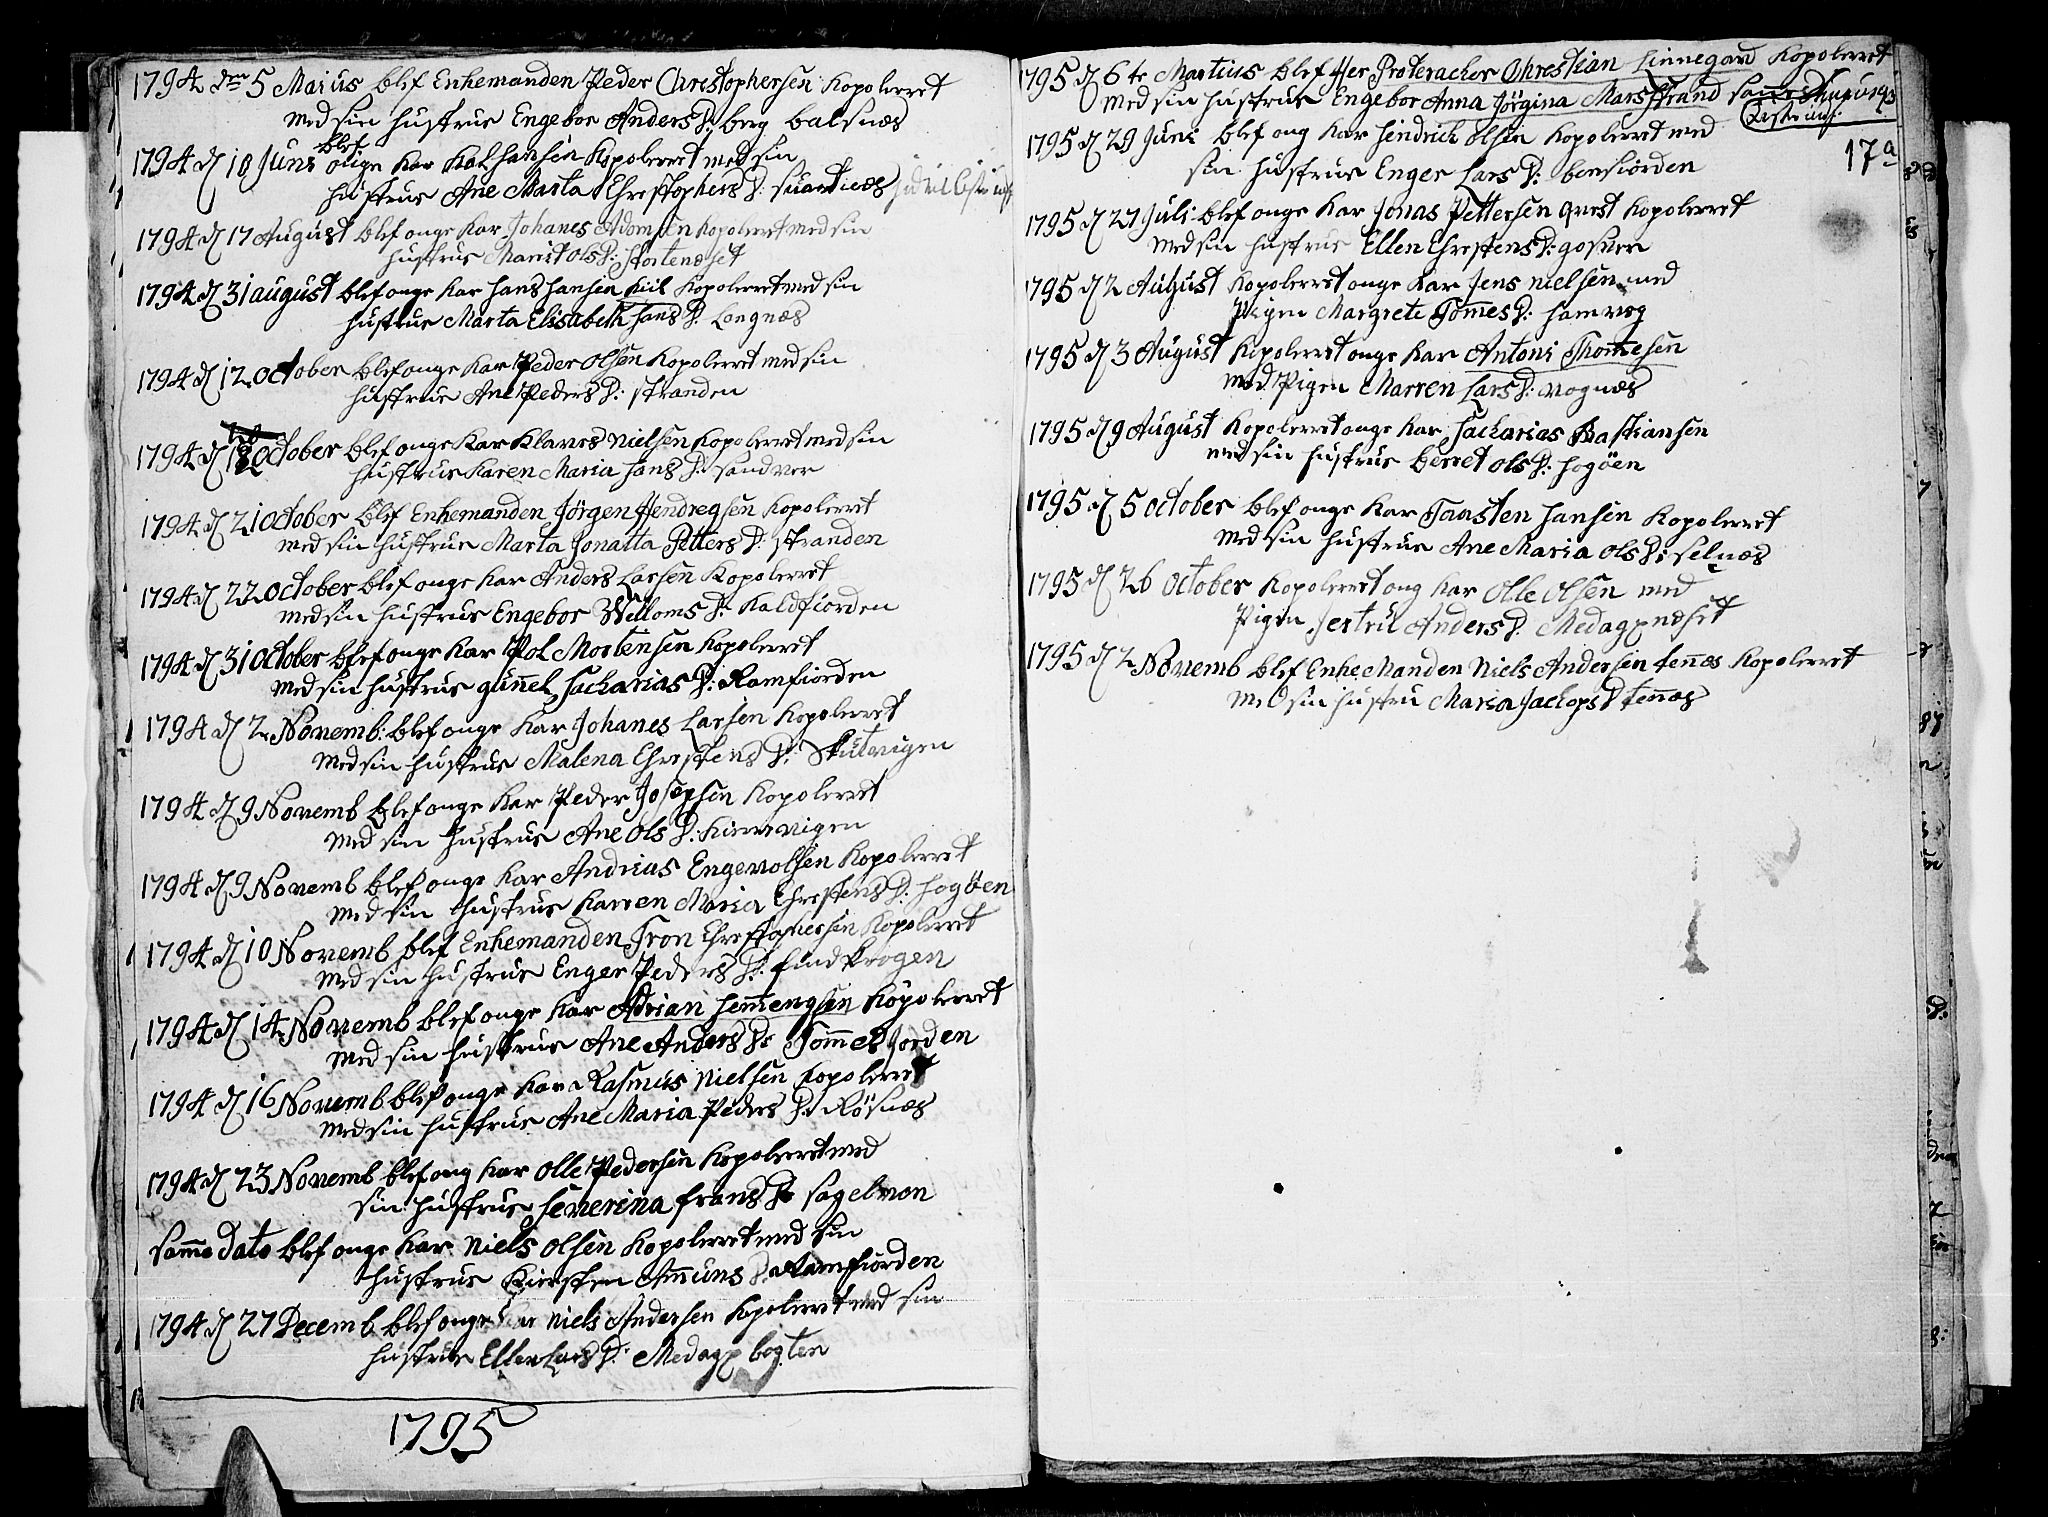 1794 den 5 Maius blef Enkemanden Peder Christophersen Kopoleret
Med sin hustrue Engebor Anders D: berg balsnæs
blef
1794 d 18 Juni onge Kar Kal hansen Kopoleret med sin
hustrue Ane Marta Chrestophers D: suartnæs
1794 d 17 August blef onge Kar Johanes Adomsen Kopoleret med sin
hustrue Marit ols D:
1794 d 31 august blef onge Kar hans hansen kiil Kopoleret med sin
hustrue Marta Elisabeth hans D: Longnæs
1794 d 12 october blef onge Kar Peder olsen Kopoleret med sin
hustrue Ane Peders D: stranden
1794 d october blef onge Kar Klaves Nielsen Kopoleret med sin
hustrue Karen Maria hans D: sandver
1794 d 21 october blef Enkemanden Jörgen Hendregsen Kopoleret
med sin hustrue Marta Jonatta Petters D: stranden
1794 d 22 october blef onge Kar Anders Larsen Kopoleret
med sin hustrue Engebor Willoms D: Kaldfiorden
1794 d 31 october blef onge Kar Pol Mortensen Kopoleret
med sin hustrue gunnel Sacharias D: Ramfiorden
1794 d 2 Novemb: blef onge Kar Johanes Larsen Kopoleret
Med sin hustrue Malena Chrestens D: Skutvigen
1794 d 9 Novemb blef onge Kar Peder Josepsen Kopoleret
Med sin hustrue Ane ols D:
1794 d 9 Novemb blef onge Kar Andrias Engevolsen Kopoleret
Med sin hustrue Karren Maria Chrestens D: hogöen
1794 d 10 Novemb blef Enkemanden Tron Chrestophersen Kopoleret
Med sin hustrue Enger Peders D: findkrogen
1794 d 14 Novemb blef onge Kar Adrian hemmengsen Kopoleret
Med sin hustrue Ane Anders D: Tommesjorden
1794 d 16 Novemb blef onge Kar Rasmus Nielsen Kopoleret
Med sin hustrue Ane Maria Peders D: Rösnæs
1794 d 23 Novemb blef ong Kar olle Pedersen Kopoleret med
sin hustrue severina frans D: sagelven
samme Dato blef onge Kar Niels olsen Kopoleret med sin
hustrue Kiersten Ammuns D: Ramfiorden
1794 d 27 Decemb blef onge Kar Niels Andersen Kopoleret med sin
hustrue Ellen Lars D: Medagp bogten
1795
1795 d 6te Martius blef Her Chrestian Linnegard Kopoleret
Med sin hustrue Engebor Anna Jörgina Marsstrand
1795 d 29 Juni blef ong Kar hindrich olsen Kopoleret med
sin hustrue Enger Lars D: bensiorden
17a
1795 d 27 Juli blef onge Kar Jonas Pettersen Qvest Kopoleret
Med sin hustrue Ellen Chrestens D: gosver
1795 d 2 August Kopoleret onge Kar Jens Nielsen med
Pigen Margrete Tommes D: hamvog
1795 d 3 August Kopoleret onge Kar Antoni Thomesen
med Pigen Marren Lars D: vognæs
1795 d 9 August Kopoleret onge Kar Sackarias Bastiansen
med sin hustrue berret ols D: hogöen
1795 d 5 october blef onge Kar Taasten hansen Kopoleret
Med sin hustrue Ane Maria ols D: selnæs
1795 d 26 october Kopoleret ong Kar olle olsen med
Pigen Jertru Anders D: Medagpneset
1795 d 2 Novemb blef Enke Manden Niels Andersen tennæs Kopoleret
Med sin hustru Maria Jackops D tennæs